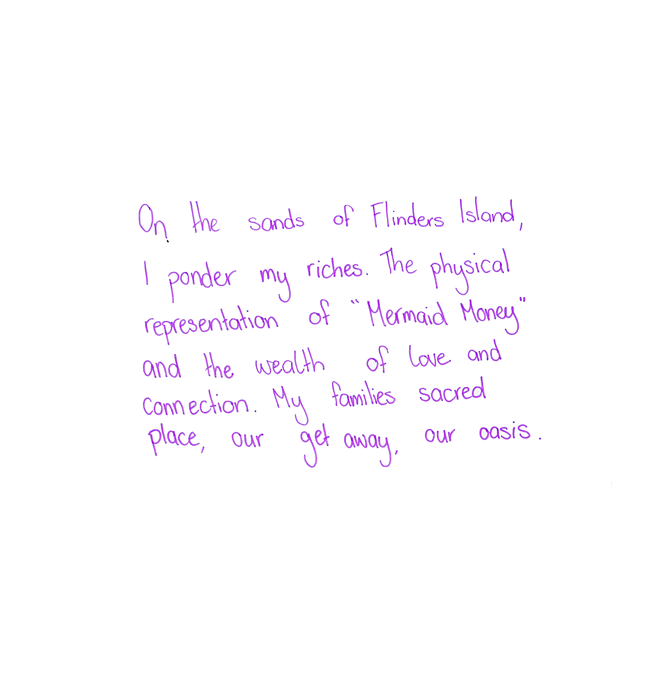 On the sands of Flinders Island,
I ponder my riches. The physical
representation of "Mermaid Money"
and the wealth of love and
connection. My families sacred
place, our get away, our oasis.